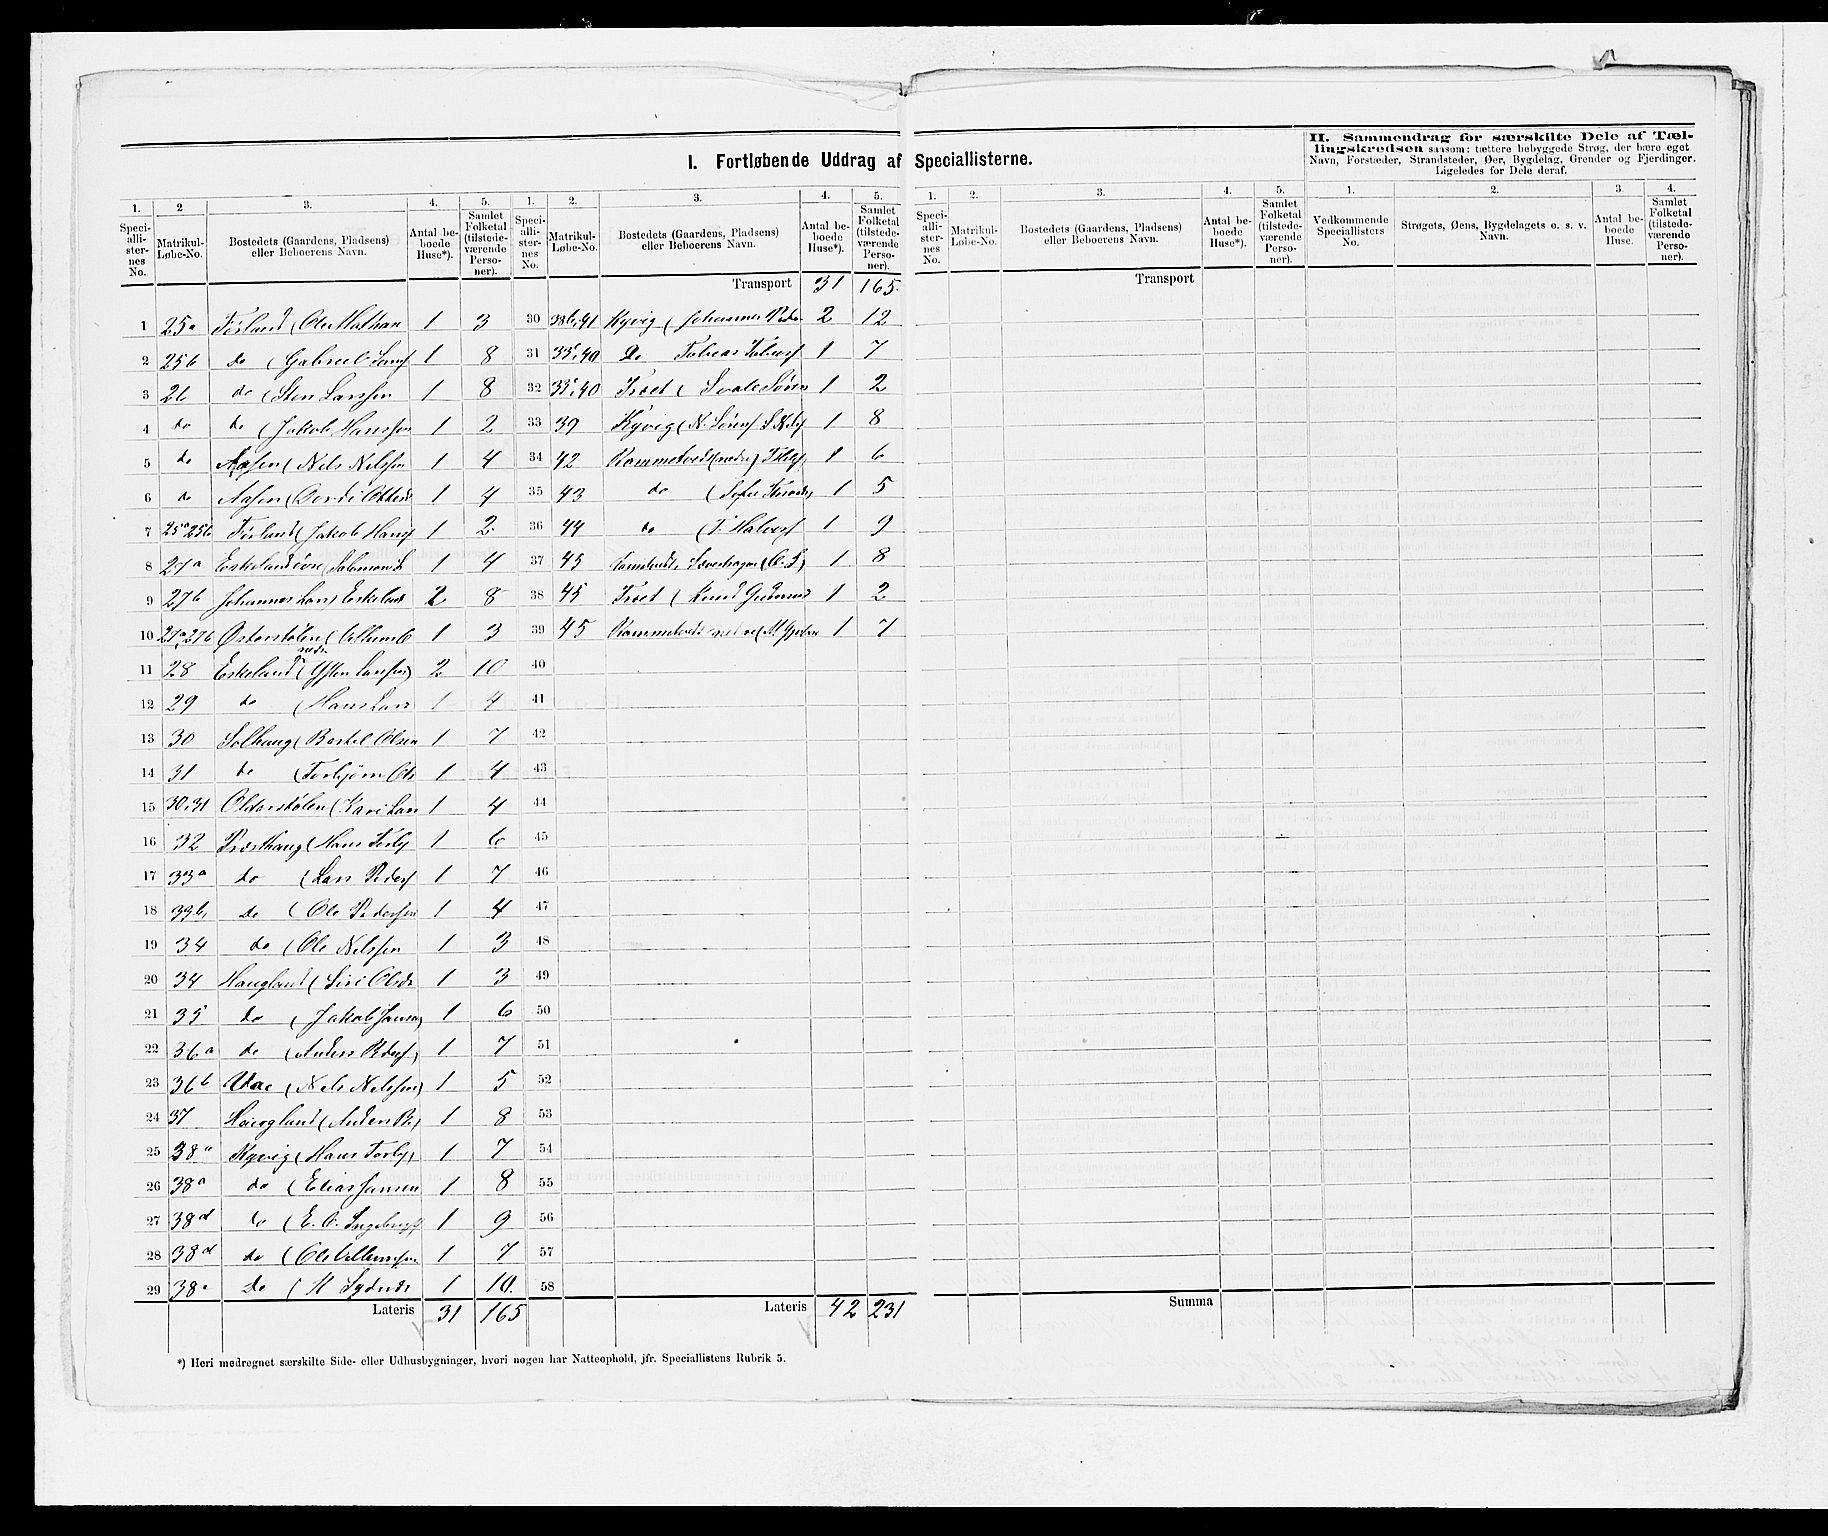 I. Fortløbende Uddrag af Speciallisterne.
II. Sammendrag for særskilte Dele af Tællingskredsen saasom: tættere bebyggede Strøg, der bære eget Navn, Forstæder, Strandsteder, Øer, Bygdelag, Grender og Fjerdinger. Ligeledes for Dele deraf.
1. 2 3. 4. 5. 1. 2. 3. 4. 5. 1. 2. 3. 4. 5. 1. 2. 3. 4.
Speciallisternes No. Matrikul-Løbe-No. Bostedets (Gaardens, Pladsens) eller Beboerens Navn. Antal beboede Huse*). Samlet Folketal (tilstedeværende Personer).
Speciallisternes No. Matrikul-Løbe-No. Bostedets (Gaardens, Pladsens) eller Beboerens Navn. Antal beboede Huse*). Samlet Folketal (tilstedeværende Personer).
Speciallisternes No. Matrikul-Løbe-No. Bostedets (Gaardens, Pladsens) eller Beboerens Navn. Antal beboede Huse*). Samlet Folketal (tilstedeværende Personer).
Vedkommende Speciallisters No. Strøgets, Øens, Bygdelagets o. s. v. Navn. Antal beboede Huse. Samlet Folketal (tilstedeværende Personer).
Transport 31 165.
Transport
1 25a Førland (Ole Mathan 1 3
2 25b do (Gabriel 1 8
3 26 do (Sten Larssen 1 8
4 do do (Jakob Hanssen 1 2
5 do Aasen (Nels Nelssen 1 4
6 do Aasen ( 1 4
7 25a 25b Førland (Jakob Hansf 1 2
8 27a Eskeland øvre (Salomon L 1 4
9 27b Johannes Lars) Eskeland 2 8
10 27a, 27b Østerstølen (Villum O 1 3
11 28 Eskeland nedre (Østen Larssen) 2 10
12 29 do (Hans Lars 1 4
13 30 Solhaug (Bertel Olsen 1 7
14 31 do (Torbjørn Ols 1 4
15 30, 31 Olderstølen (Kari Lars 1 4
16 32 Præsthaug (Hans Torbj 1 6
17 33a do (Lars Pedersf 1 7
18 33b, do (Ole Pederssen 1 4
19 34 do (Ole Nelssen 1 3
20 34 Haugland (Siri Olsdr 1 3
21 35 do (Jakob Jansen) 1 6
22 36a do (Anders Pedersf) 1 7
23 36b (Nels Nelssen) 1 5
24 37 Haugland (Anders P.) 1 8
25 38a Kyvig (Hans Torbj) 1 7
26 38a do (Elias Jansen 1 8
27 38d do (E. O. Ingebregtsf 1 9
28 38d do (Ole Villumssen 1 7
29 38 Do ( 1 10.
Lateris 31 165
30 38b, 41 Kyvig (Johannes Peder 2 12
31 40 Do Tobias 1 7
32 40 Træet (Svale Søren 1 2
33 39 Kyvig (N. Sørensf 1 8
34 42 Rammetvedt (nedre) 1 6
35 43 do (Sofie 1 5
36 44 do (T. Halvorsf 1 9
37 45 1 8
38 45 Træet (Knud Gunnars 1 2
39 45 Rammetvedt nedre (M. 1 7
40
41
42
43
44
45
46
47
48
49
50
51
52
53
54
55
56
57
58
Lateris 42 231
Summa
*) Heri medregnet særskilte Side- eller Udhusbygninger, hvori nogen har Natteophold, jfr. Speciallistens Rubrik 5.